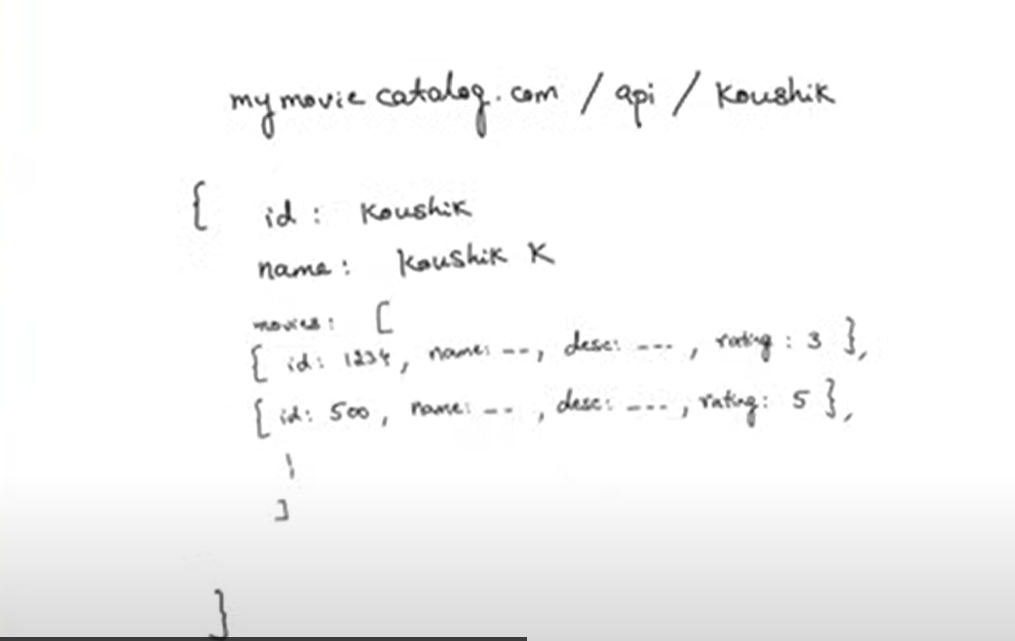 mymoviecatalog.com / api / Koushik
{ id : Koushik
name : Koushik K
movies : [
{ id : 1234, name: --, desc: ---, rating : 3 },
{ id: 500, name: --, desc: ---, rating: 5 },
|
]
}